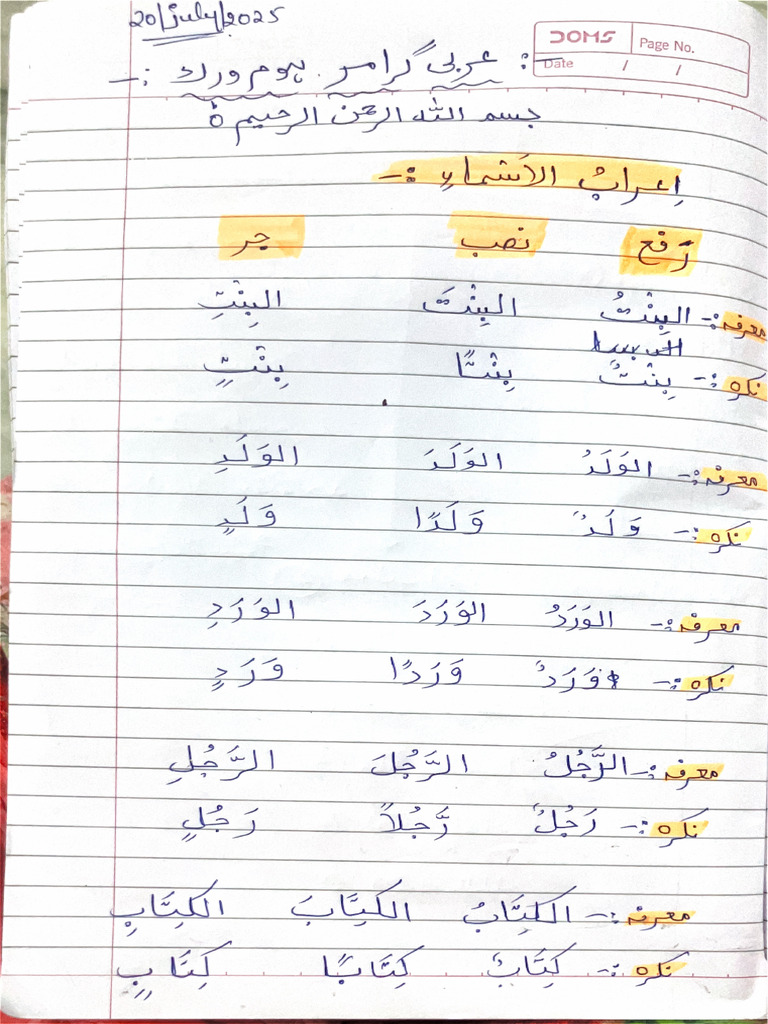 20/july/2025
DOMS Page No.
Date / /
:- عربی گرامر ہوم ورک :-
بسم اللہ الرحمن الرحیم ○
اِعرابُ الاَسْماءِ :-
رَفع نصب جر
معرفہ :- البِنْتُ البِنْتَ البِنْتِ
نکرہ :- بِنْتٌ بِنْتًا بِنْتٍ
معرفہ :- الوَلَدُ الوَلَدَ الوَلَدِ
نکرہ :- وَلَدٌ وَلَدًا وَلَدٍ
معرفہ :- الوَرَدُ الوَرَدَ الوَرَدِ
نکرہ :- وَرَدٌ وَرَدًا وَرَدٍ
معرفہ :- الرَّجُلُ الرَّجُلَ الرَّجُلِ
نکرہ :- رَجُلٌ رَّجُلاً رَجُلٍ
معرفہ :- الکِتَابُ الکِتَابَ الکِتَابِ
نکرہ :- کِتَابٌ کِتَابًا کِتَابٍ